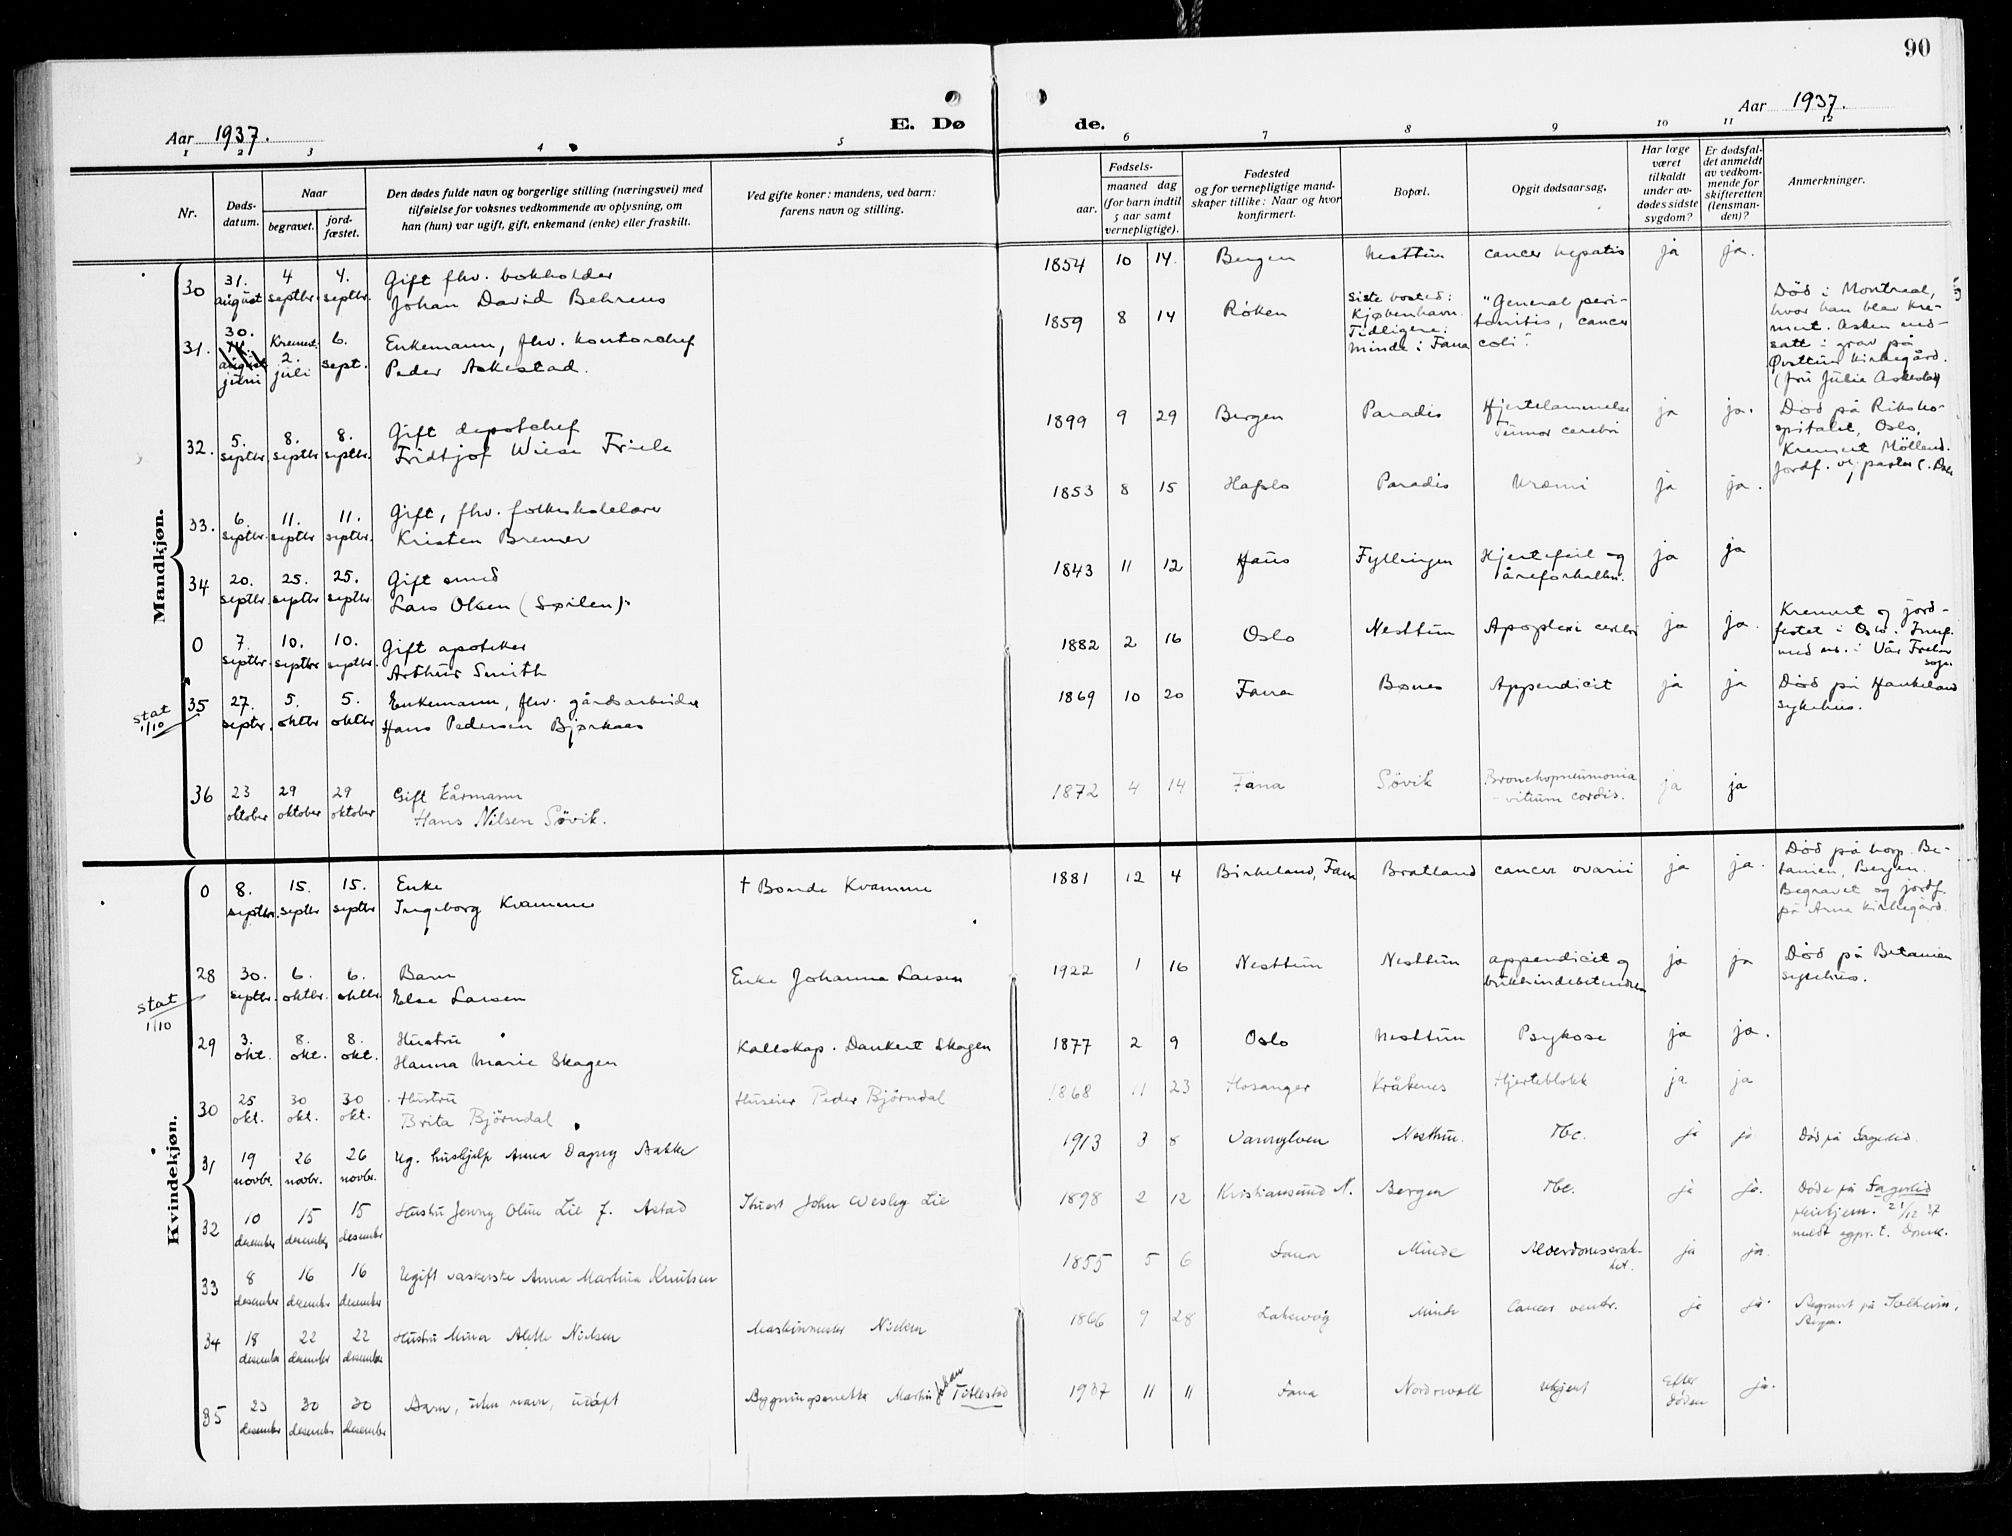 90
Aar 1937.
E. Dø de.
Aar 1937.
1 2 3 4 5 6 7 8 9 10 11 12
Nr.
Døds-
datum.
Naar
begravet.
jord-
fæstet.
Den dødes fulde navn og borgerlige stilling (næringsvei) med
tilføielse for voksnes vedkommende av oplysning, om
han (hun) var ugift, gift, enkemand (enke) eller fraskilt.
Ved gifte koner: mandens, ved barn:
farens navn og stilling.
Fødsels-
aar.
maaned dag
(for barn indtil
5 aar samt
vernepligtige).
Fødested
og for vernepligtige mand-
skaper tillike: Naar og hvor
konfirmert.
Bopæl.
Opgit dødsaarsag.
Har læge
været
tilkaldt
under av-
dødes sidste
sygdom?
Er dødsfal-
det anmeldt
av vedkom-
mende for
skifteretten
(lensman-
den)?
Anmerkninger.
Mandkjøn.
30 31. august 4 septbr. 4. septbr. Gift fhv. bokholder
Johan David Behrens
1854 10 14. Bergen Nesttun cancer hepatis ja ja.
31. 30. august juni Kremert. 2. juli 6. sept. Enkemann, fhv. kontorchef
Peder Askestad.
1859 8 14 Røken
Siste bosted:
Kjøbenhavn.
Tidligere:
Minde i Fana
"General peri-
tonitis, cancer
coli".
Død i Montreal,
hvor han blev kre-
mert. Asken ned-
satt i grav på
Øvsttun kirkegård.
(fru Julie Askestad)
32. 5. septbr. 8. septbr. 8. septbr. Gift depotchef
Fridtjof Wiese Friele
1899 9 29 Bergen Paradis Hjertelammelse
Tumor cerebri
ja ja.
Død på Riksho-
spitalet, Oslo.
Kremert Möllend.
Jordf. v/ pastor
33. 6. septbr. 11. septbr 11. septbr. Gift, fhv. folkeskolelærer
Kristen Bremer
1853 8 15 Hafslo Paradis Uræmi ja ja.
34 20. septbr. 25. septbr 25. septbr Gift smed
Lars Olsen (Sørlen).
1843 11 12 Haus Fyllingen Hjertefeil og
åreforkalkn.
ja ja
0 7. septbr. 10. septbr. 10. septbr. Gift apoteker
Arthur Smith
1882 2 16 Oslo Nesttun Apoplexi cerebri ja ja.
Kremert og jord-
festet i Oslo. Innf.
med nr. i Vår Frelser
sogn.
stat
1/10
35 27. septbr. 5. oktbr 5. oktbr. Enkemann, fhv. gårdsarbeider
Hans Pedersen Bjørkaas
1869 10 20 Fana Bønes Appendicit ja ja
Død på Haukeland
sykehus.
36 23 oktober 29 oktober 29 oktober Gift kårmann
Hans Nilsen Sövik.
1872 4 14 Fana Sövik Bronchopneumonia
- vitium cordis.
ja ja
Kvindekjøn.
0 8. septbr. 15. septbr 15. septbr Enke
Ingeborg Kvamme
† Bonde Kvamme
1881 12 4 Birkeland, Fana Bratland cancer ovarii ja ja.
Død på hosp. Be-
tanien, Bergen.
Begravet og jordf.
på Arna kirkegård.
stat
1/10
28 30. septbr. 6. oktbr. 6. oktbr. Barn
Else Larsen
Enke Johanna Larsen
1922 1 16 Nesttun Nesttun appendicit og
bukhindebetendelse
ja ja
Død på Betanien
sykehus.
29 3. okt. 8. okt. 8. okt. Hustru
Hanna Marie Skagen
Kallskap. Dankert Skagen
1877 2 9 Oslo Nesttun Psykose ja ja.
30 25 okt. 30 okt. 30 okt. Hustru
Brita Björndal
Huseier Peder Björndal
1868 11 23 Hosanger Kråkenes Hjerteblokk ja ja
31 19 novbr. 26 novbr. 26 novbr. Ug. hushjelp Anna Dagny Bakke
1913 3 8 Vannylven Nesttun. Tbc. ja ja
Død på Fagerlid.
32 10 desember 15 desember 15 desember Hustru Jenny Oline Lie f. Astad
Stuert John Wesley Lie
1898 2 12 Kristiansund N. Bergen Tbc. ja ja.
Døde på Fagerlid
pleiehjem. 21/12 37
meldt sgpr. t. Domk.
33 8 desember 16 desember 16 desember Ugift vaskerske Anna Martina Knutsen
1855 5 6 Fana Minde Alderdomssvak-
het.
ja ja.
34 18 desember 22 desember 22 desember Hustru Mina Alette Nielsen
Maskinmester Nielsen
1866 9 28 Laksevåg Minde Cancer ventr. ja ja.
Begravet på Solheim,
Bergen.
35 23 desember 30 desember 30 desember Barn, uten navn, udøpt
Bygningssnekker Martin Johan Titlestad
1937 11 11 Fana Nordrevoll Ukjent Efter
døden
ja.